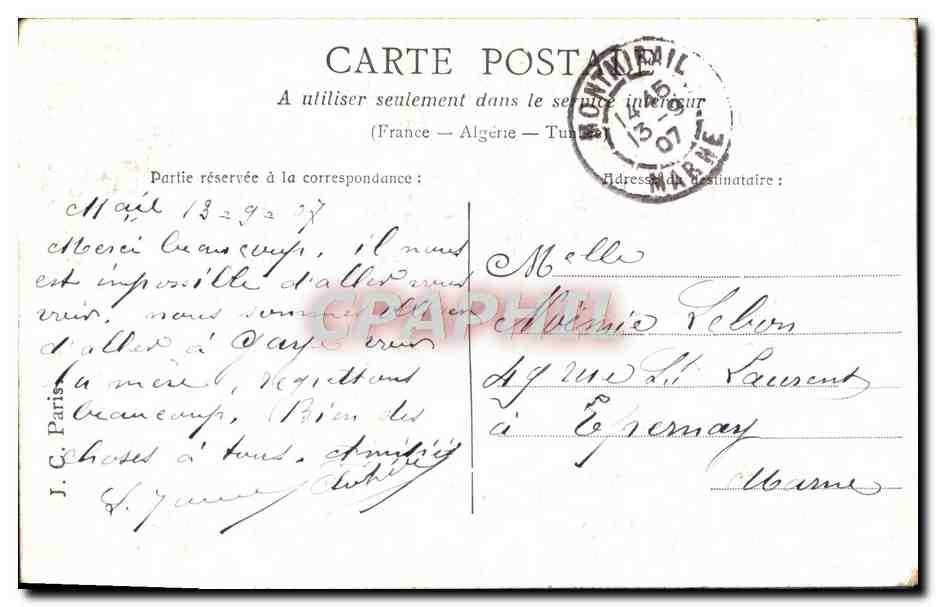 CARTE POSTALE
A utiliser seulement dans le service intérieur
(France — Algérie — Tunisie)
MONTMIRAIL
14 45
13 -9
07
MARNE
Partie réservée à la correspondance :
Adresse du destinataire :
13-9-07
Merci beaucoup, il nous
est impossible d'aller vous
voir, nous sommes
d'aller à Gaye voir
la mère, regrettons
beaucoup. Bien des
choses à tous. Amitiés
Melle
Noémie Lebon
49 rue St Laurent
à Epernay
Marne
J. C. Paris
CPAPHIL